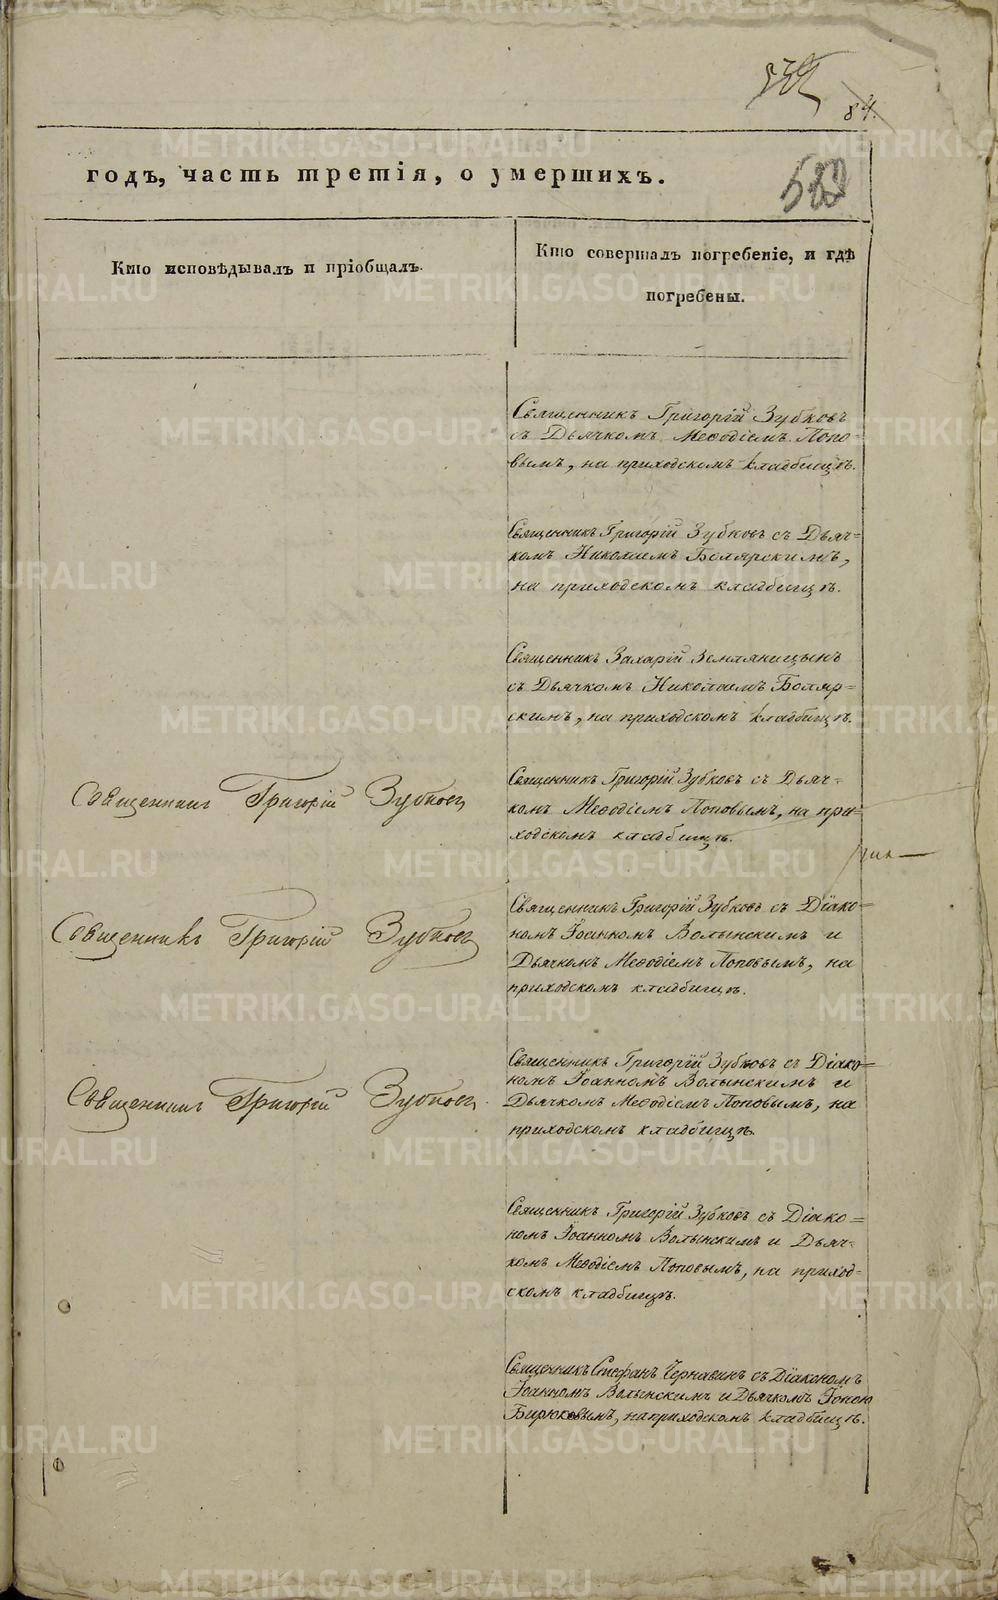 84.
годъ, часть третія, о умершихъ.
583
Кто исповѣдывалъ и пріобщалъ.
Кто совершалъ погребеніе, и гдѣ
погребены.
Священникъ Григорій Зубковъ
съ Дьячкомъ Меѳодіемъ Попо=
вымъ, на приходскомъ кладбищѣ.
Священникъ Григорій Зубковъ съ Дьяч=
комъ Николаемъ Боллрскимъ,
на приходскомъ кладбищѣ.
Священникъ Захарій Земляницынъ
съ Дьячкомъ Николаемъ Бо‌ляр=
скимъ, на приходскомъ кладбищѣ.
Священникъ Григорій Зубковъ
Священникъ Григорій Зубковъ съ Дьяч=
комъ Меѳодіемъ Поповымъ, на при=
ходскомъ кладбищѣ.
Священникъ Григорій Зубковъ
Священникъ Григорій Зубковъ съ Діако=
номъ Іоанномъ Волынскимъ и
Дьячкомъ Меѳодіемъ Поповымъ, на
приходскомъ кладбищѣ.
Священникъ Григорій Зубковъ
Священникъ Григорій Зубковъ съ Діако=
номъ Іоанномъ Волынскимъ и
Дьячкомъ Меѳодіемъ Поповымъ, на
приходскомъ кладбищѣ.
Священникъ Григорій Зубковъ съ Діако=
номъ Іоанномъ Волынскимъ и Дьяч=
комъ Меѳодіемъ Поповымъ, на приход=
скомъ кладбищѣ.
Священникъ Стефанъ Чернавинъ съ Діакономъ
Іоанномъ Волынскимъ и Дьячкомъ Іоною
Бирюковымъ, на приходскомъ кладбищѣ.
METRIKI.GASO-URAL.RU